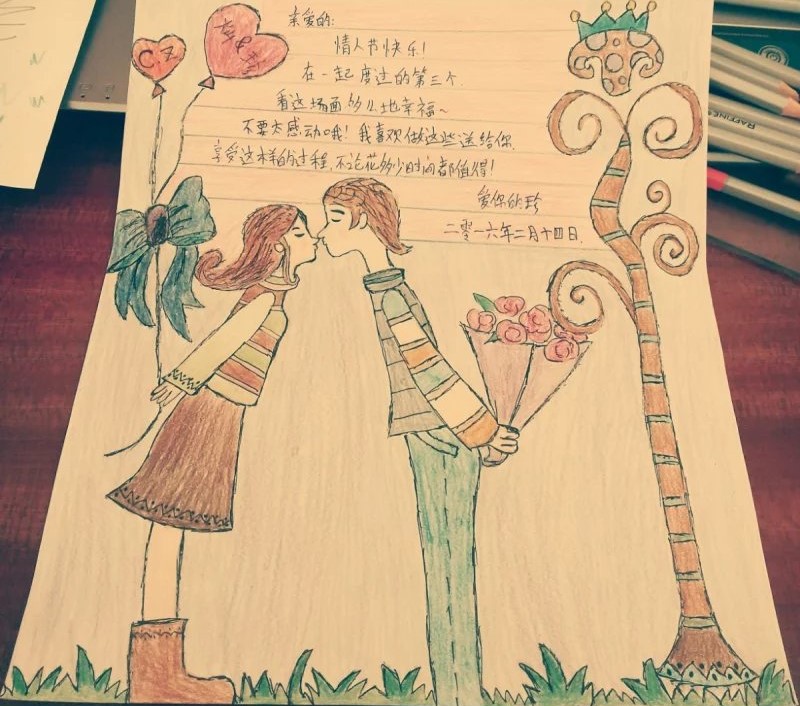 C Z
亲爱的:
情人节快乐!
在一起度过的第三个.
看这场面多么地幸福~
不要太感动哦! 我喜欢做这些送给你.
享受这样的过程,不论花多少时间都值得!
爱你的玲
二零一六年二月十四日.
RAFFINE